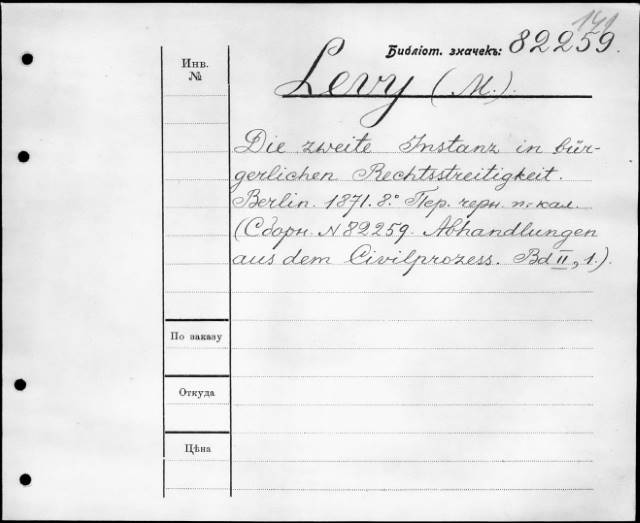 141
Библіот. значекъ: 82259.
Инв.
№
Levy (M.).
Die zweite Instanz in bür-
gerlichen Rechtsstreitigkeit.
Berlin. 1871. 8.° Пер. черн. п. кал.
(Сборн. N 82259. Abhandlungen
aus dem Civilprozess. Bd II, 1.)
По заказу
Откуда
Цѣна